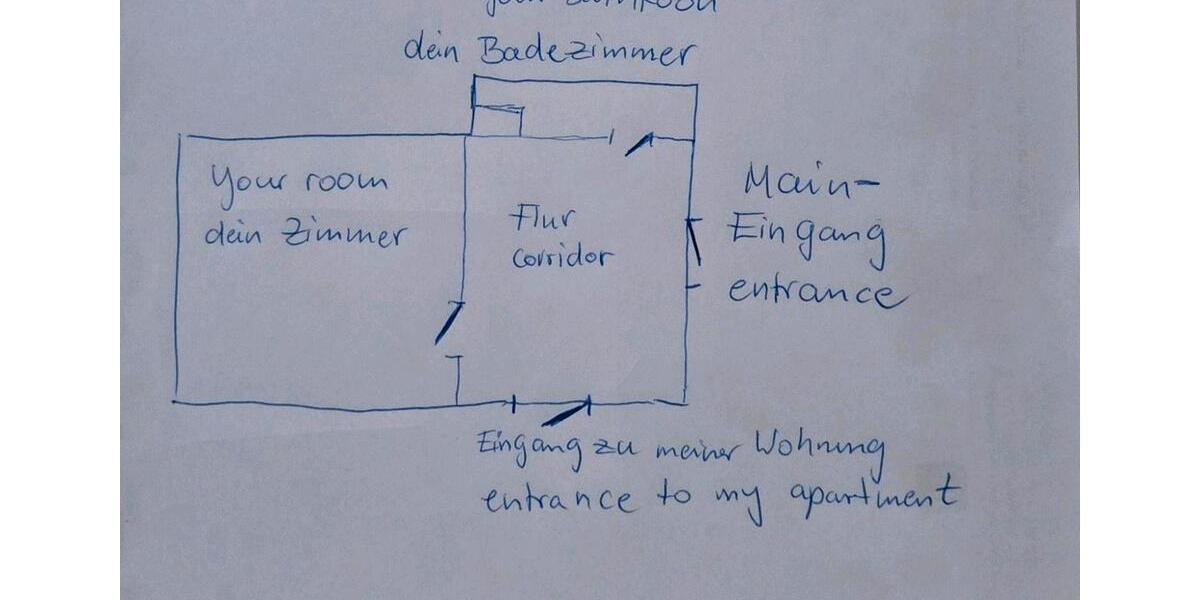 dein Badezimmer
Your room
dein Zimmer
Flur
corridor
Main-
Eingang
entrance
Eingang zu meiner Wohnung
entrance to my apartment